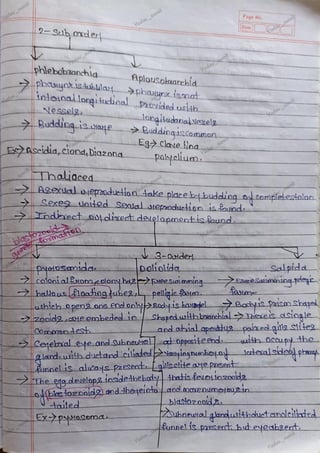 Page No.
Date
2-suborder
phlebobranchia
Aplousobranchia
→ pharynx is tubular
internal longitudinal
vessels.
→ Budding is rare
Eg:→ Ascidia, ciona, Diazona
→ pharynx is not
Provided with
longitudanal vessels
→ Budding is common
Eg:→ Clavelina
polyclium.
Thaliacea
→ Asexual reproduction take place by budding of complete stolon
→ Sexes united sexual reproduction is found.
→ Indirect or direct development is found.
blastozooid →
formation
3-order
pyrosomida
→ colonial from, colony has
→ hallous floating tubez,
which opens one end only
→ zooids are embeded in
Common test.
→ Cerebral eye and subneural
gland, with duct and ciliated
funnel is always present.
→ The egg develops inside the body
of blastozooids and there into
tailed
Ex→ pyrosoma.
Doliolida
→ Free swimming
pellgic form.
→ Body is barrel
shaped with branchial
and atrial apeature
at opposite end.
→ Varying number of
gills clite are present
that is fever in zooids
and more numerous in
blastozooids.
→ Subneural gland with duct and cilited
funnel is present. but eye absent.
Salpida
→ Free swimming peligic
form.
→ Body is Prism shaped
→ There is a single
paired gills slites
with occupy the
lateral side of pharynx